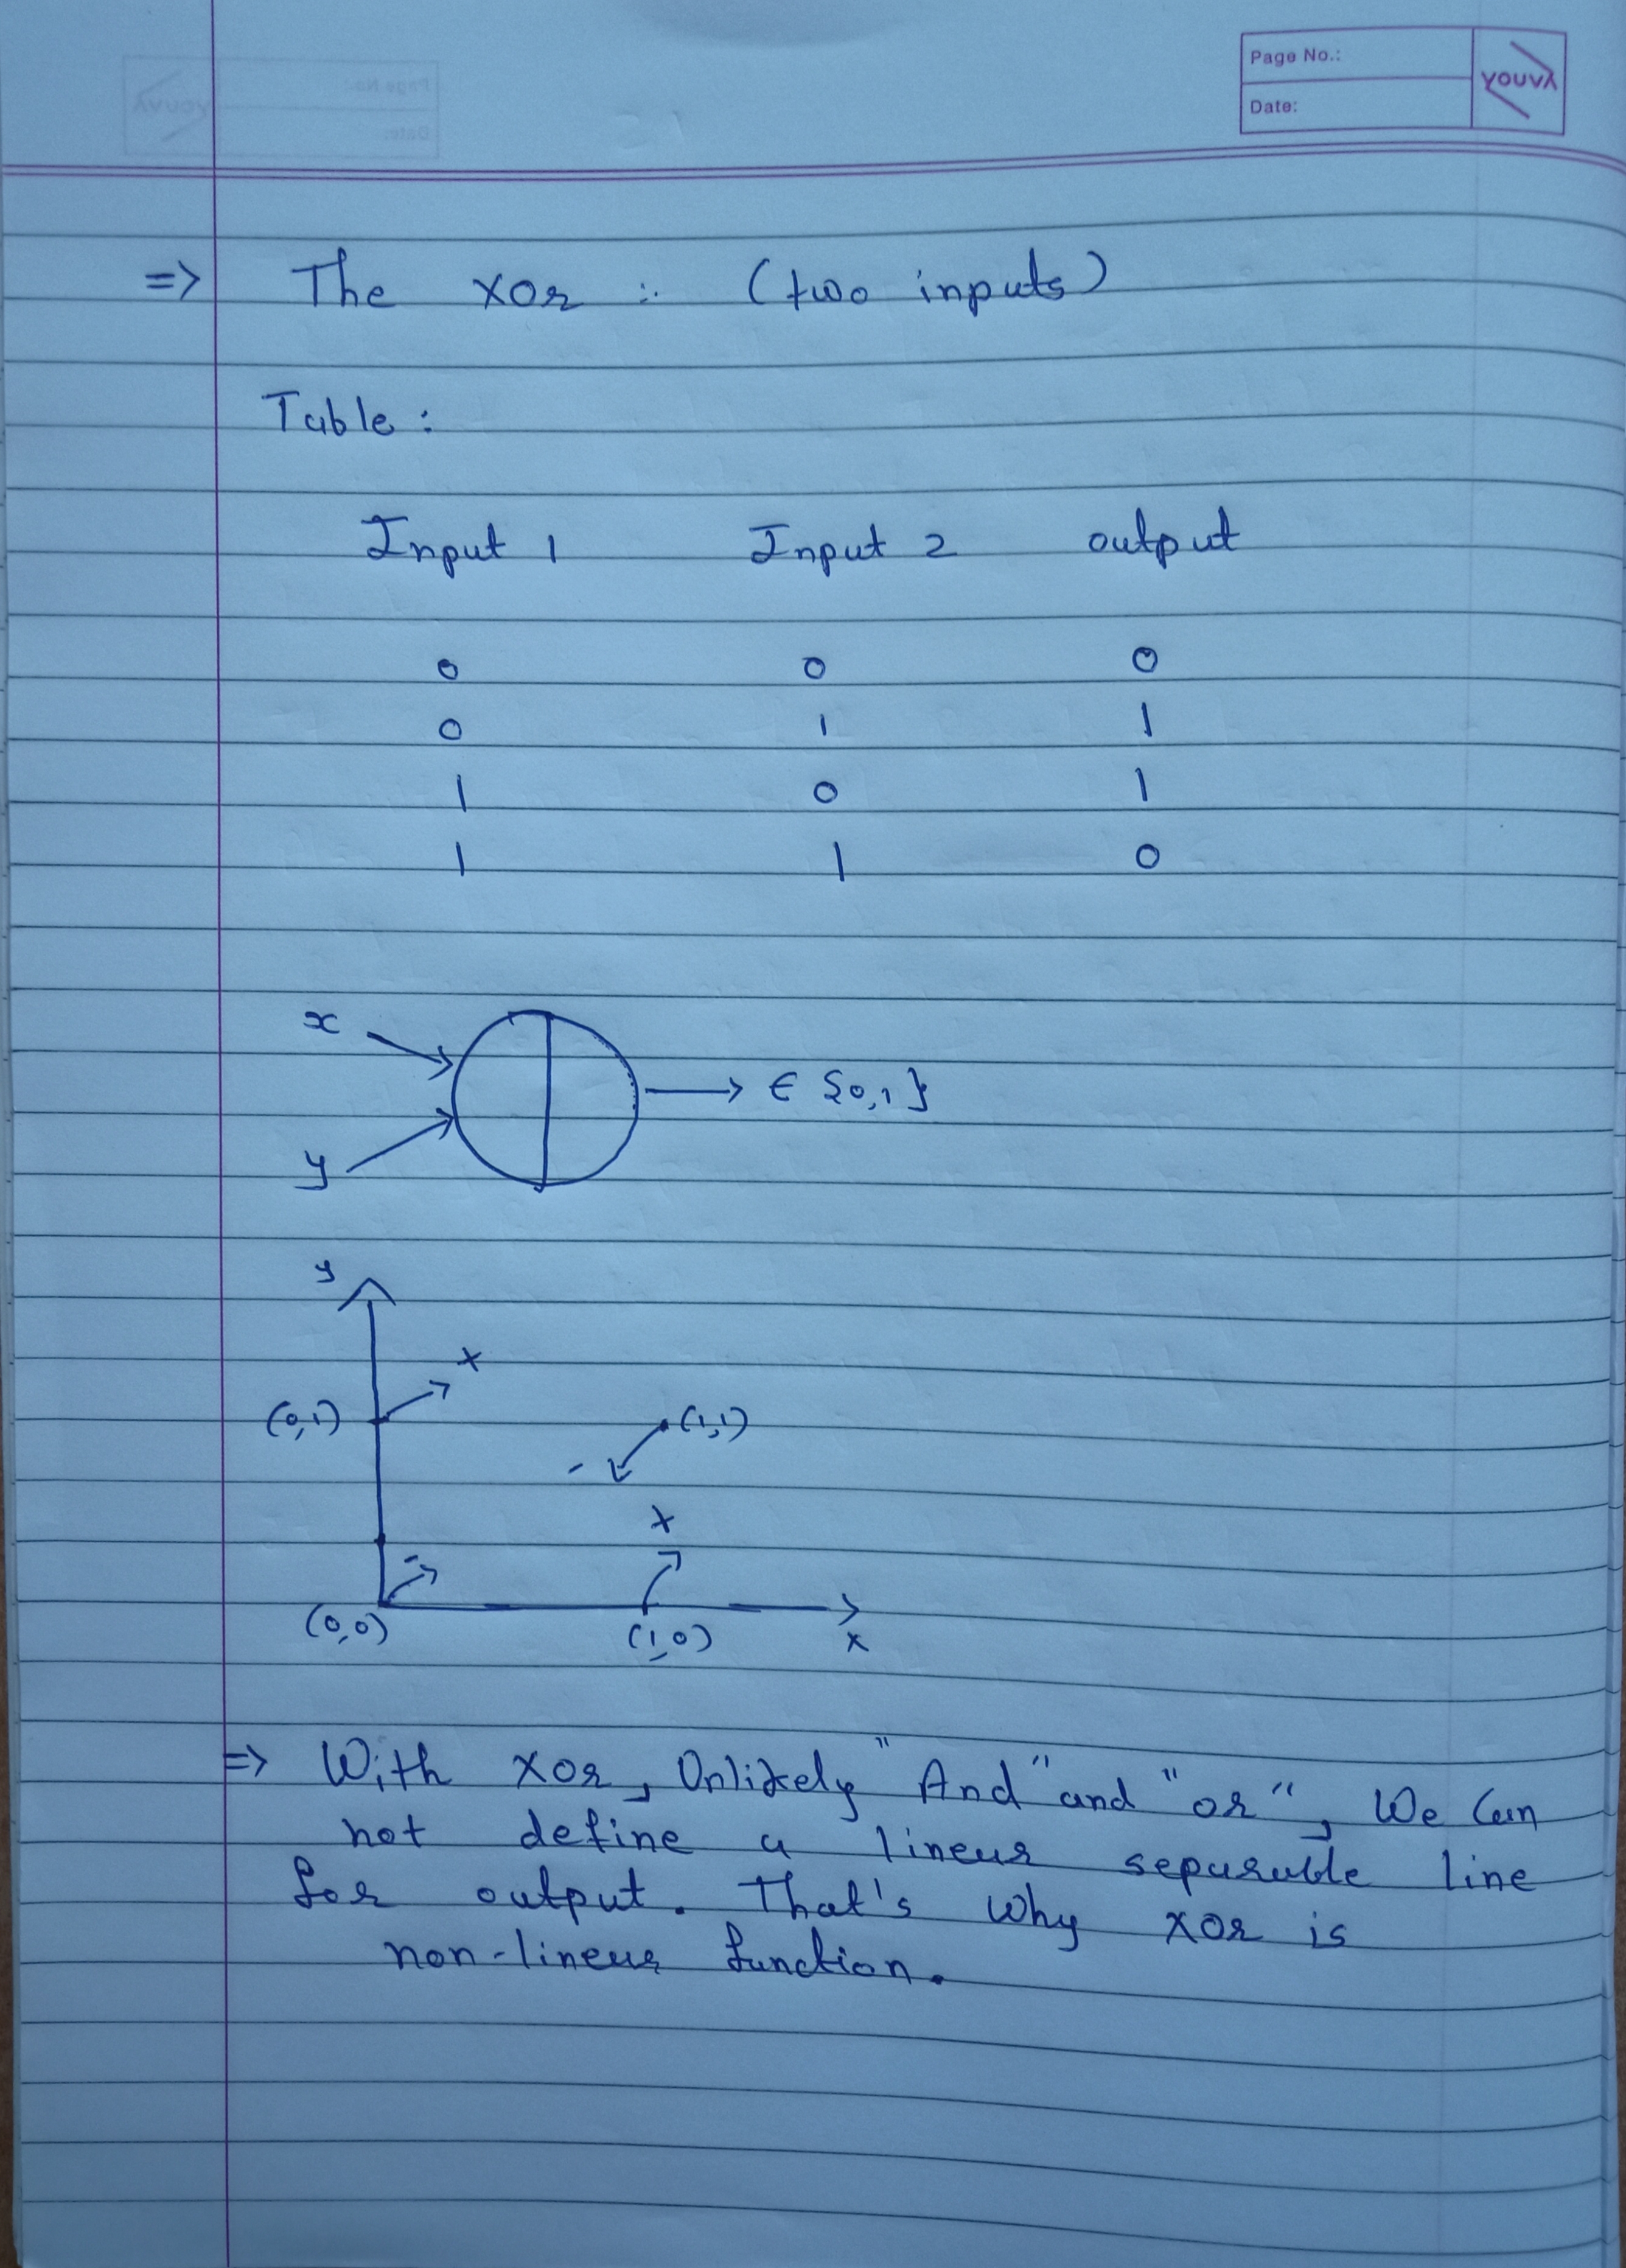 Page No.:
Date:
YOUVA
=> The XOR :. (two inputs)
Table :
Input 1 Input 2 output
0 0 0
0 1 1
1 0 1
1 1 0
x
→ ∈ {0,1}
y
y
+
(0,1) (1,1)
-
+
-
(0,0) (1,0) x
=> With XOR, Unlikely "And" and "or", We Can
not define a linear separable line
for output. That's why XOR is
non-linear function.